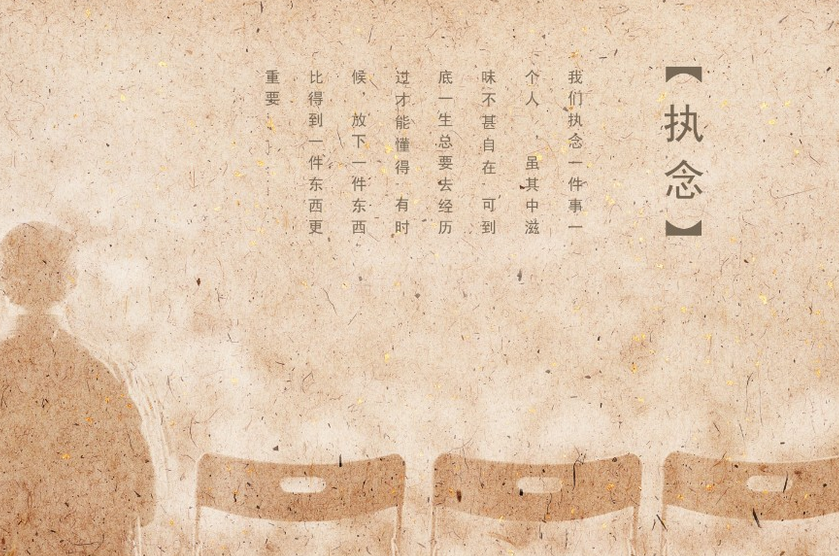 【执念】
我们执念一件事一
个人，虽其中滋
味不甚自在 可到
底一生总要去经历
过才能懂得 有时
候 放下一件东西
比得到一件东西更
重要……